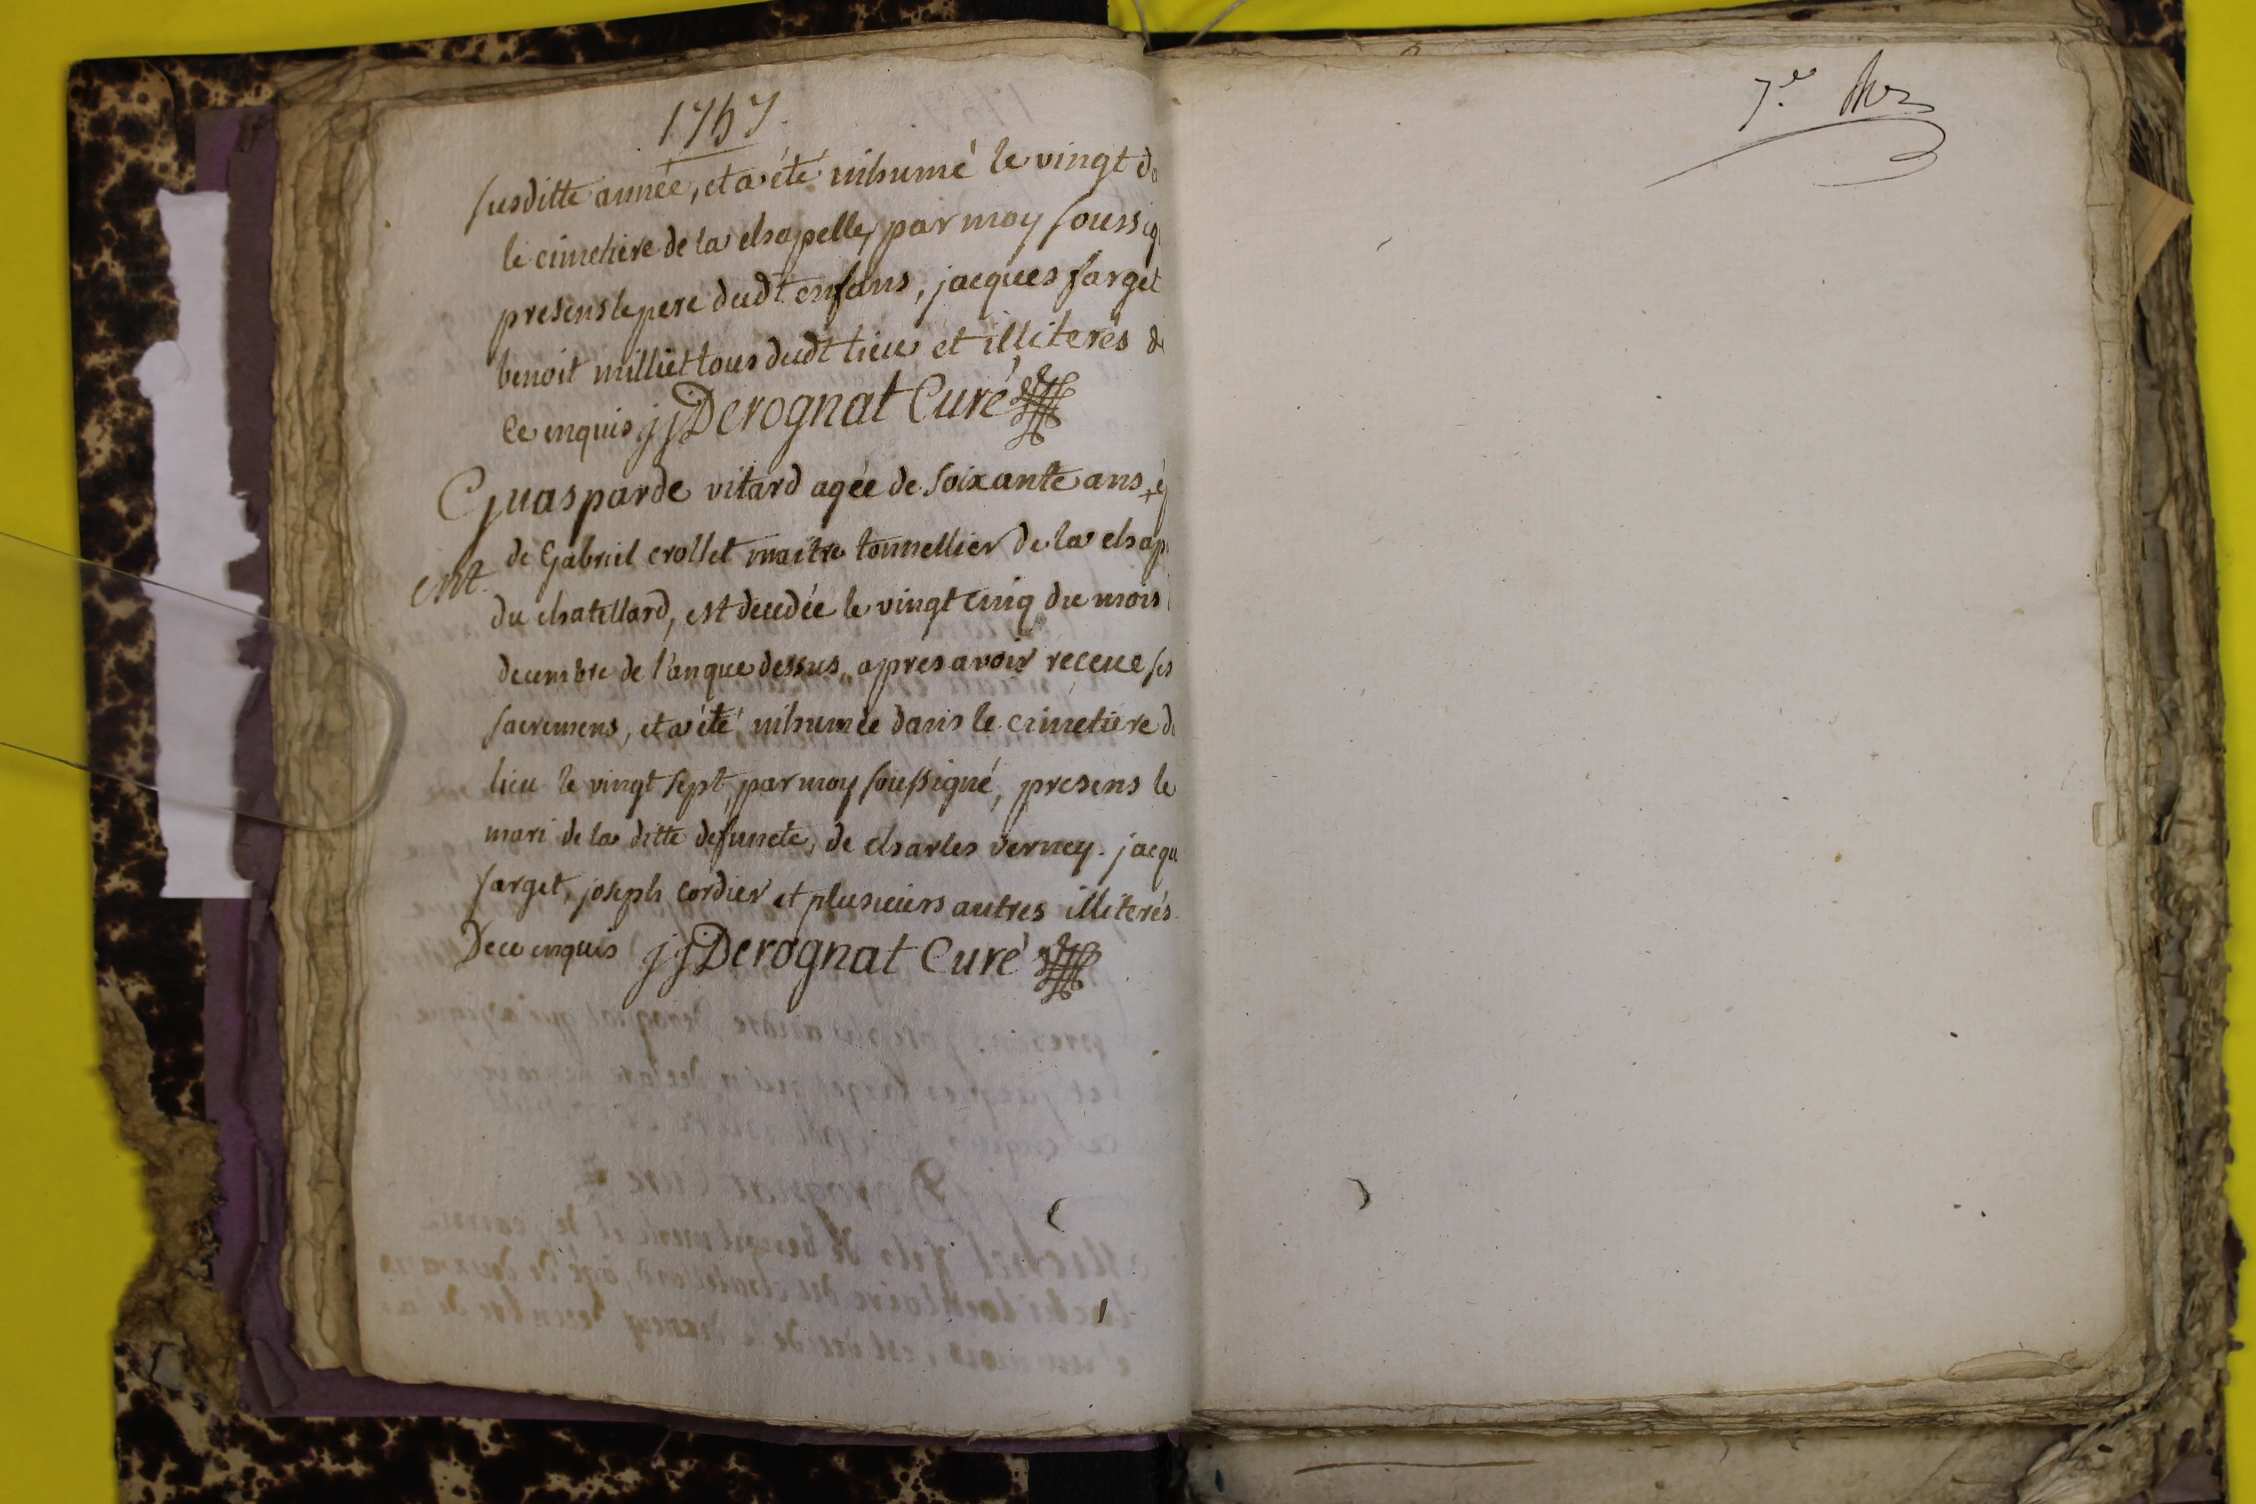 1757.
susditte année, et a été inhumé le vingt d
le cimetiere de la chapelle, par moy soussig
presens le pere dudt enfans, jacques farget
benoit milliet tous dudt lieu et illiterés de
ce enquis jjDerognat Curé
Guasparde vitard agée de soixante ans, é
de Gabriel crollet maitre tonnellier de la chap
ent.
du chatellard, est decedée le vingt cinq du mois
decembre de l'an que dessus, apres avoir receue ses
sacremens, et a été inhumée dans le cimetiere d
lieu le vingt sept, par moy soussigné, presens le
mari de la ditte defuncte, de charles verney. jacqu
farget, joseph cordier et plusieurs autres illiterés
De ce enquis jjDerognat Curé
7.e